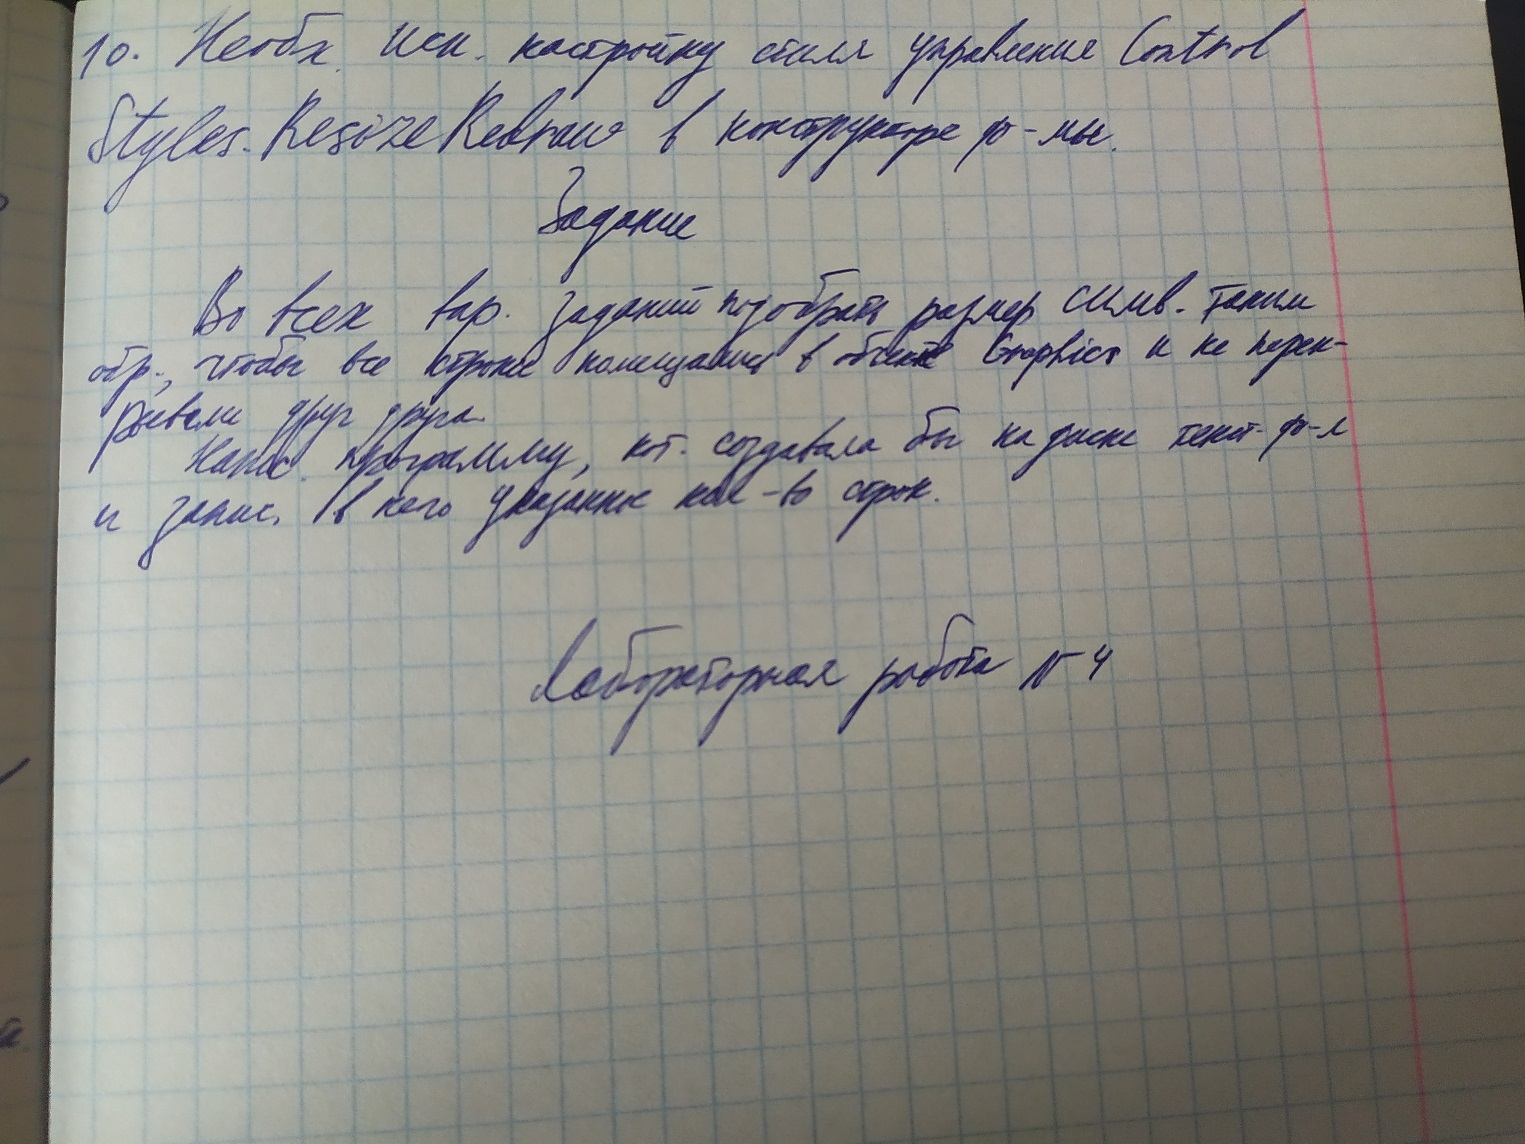 10. Необх. исп. настройку стиля управления Control
Styles.ResizeRedraw в конструкторе ф-мы.
Задание
Во всех вар. заданий подобрать размер симв. таким
обр., чтобы все строки помещались в объект Graphics и не перек-
рывали друг друга.
Напис. программу, кот. создавала бы на диске текст. ф-л
и запис. в него указанные кол-во строк.
Лабораторная работа №4